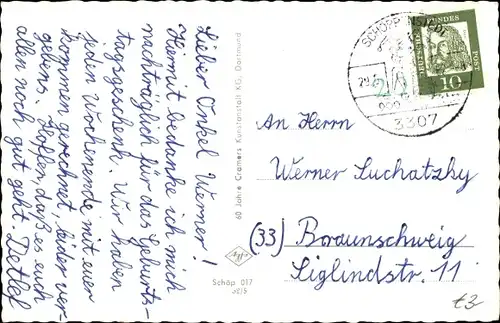 Lieber Onkel Werner!
Hiermit bedanke ich mich
nachträglich für das Geburts-
tagsgeschenk. Wir haben
jeden Wochenende mit euer
Kommen gerechnet, leider ver-
gebens. Hoffen, daß es euch
allen noch gut geht. Detlef
60 Jahre Cramers Kunstanstalt KG, Dortmund
Schöp 017
SCHÖPPENSTEDT
3307
DEUTSCHE BUNDESPOST
10
An Herrn
Werner Luchatzky
(33) Braunschweig
Siglindstr. 11
£3